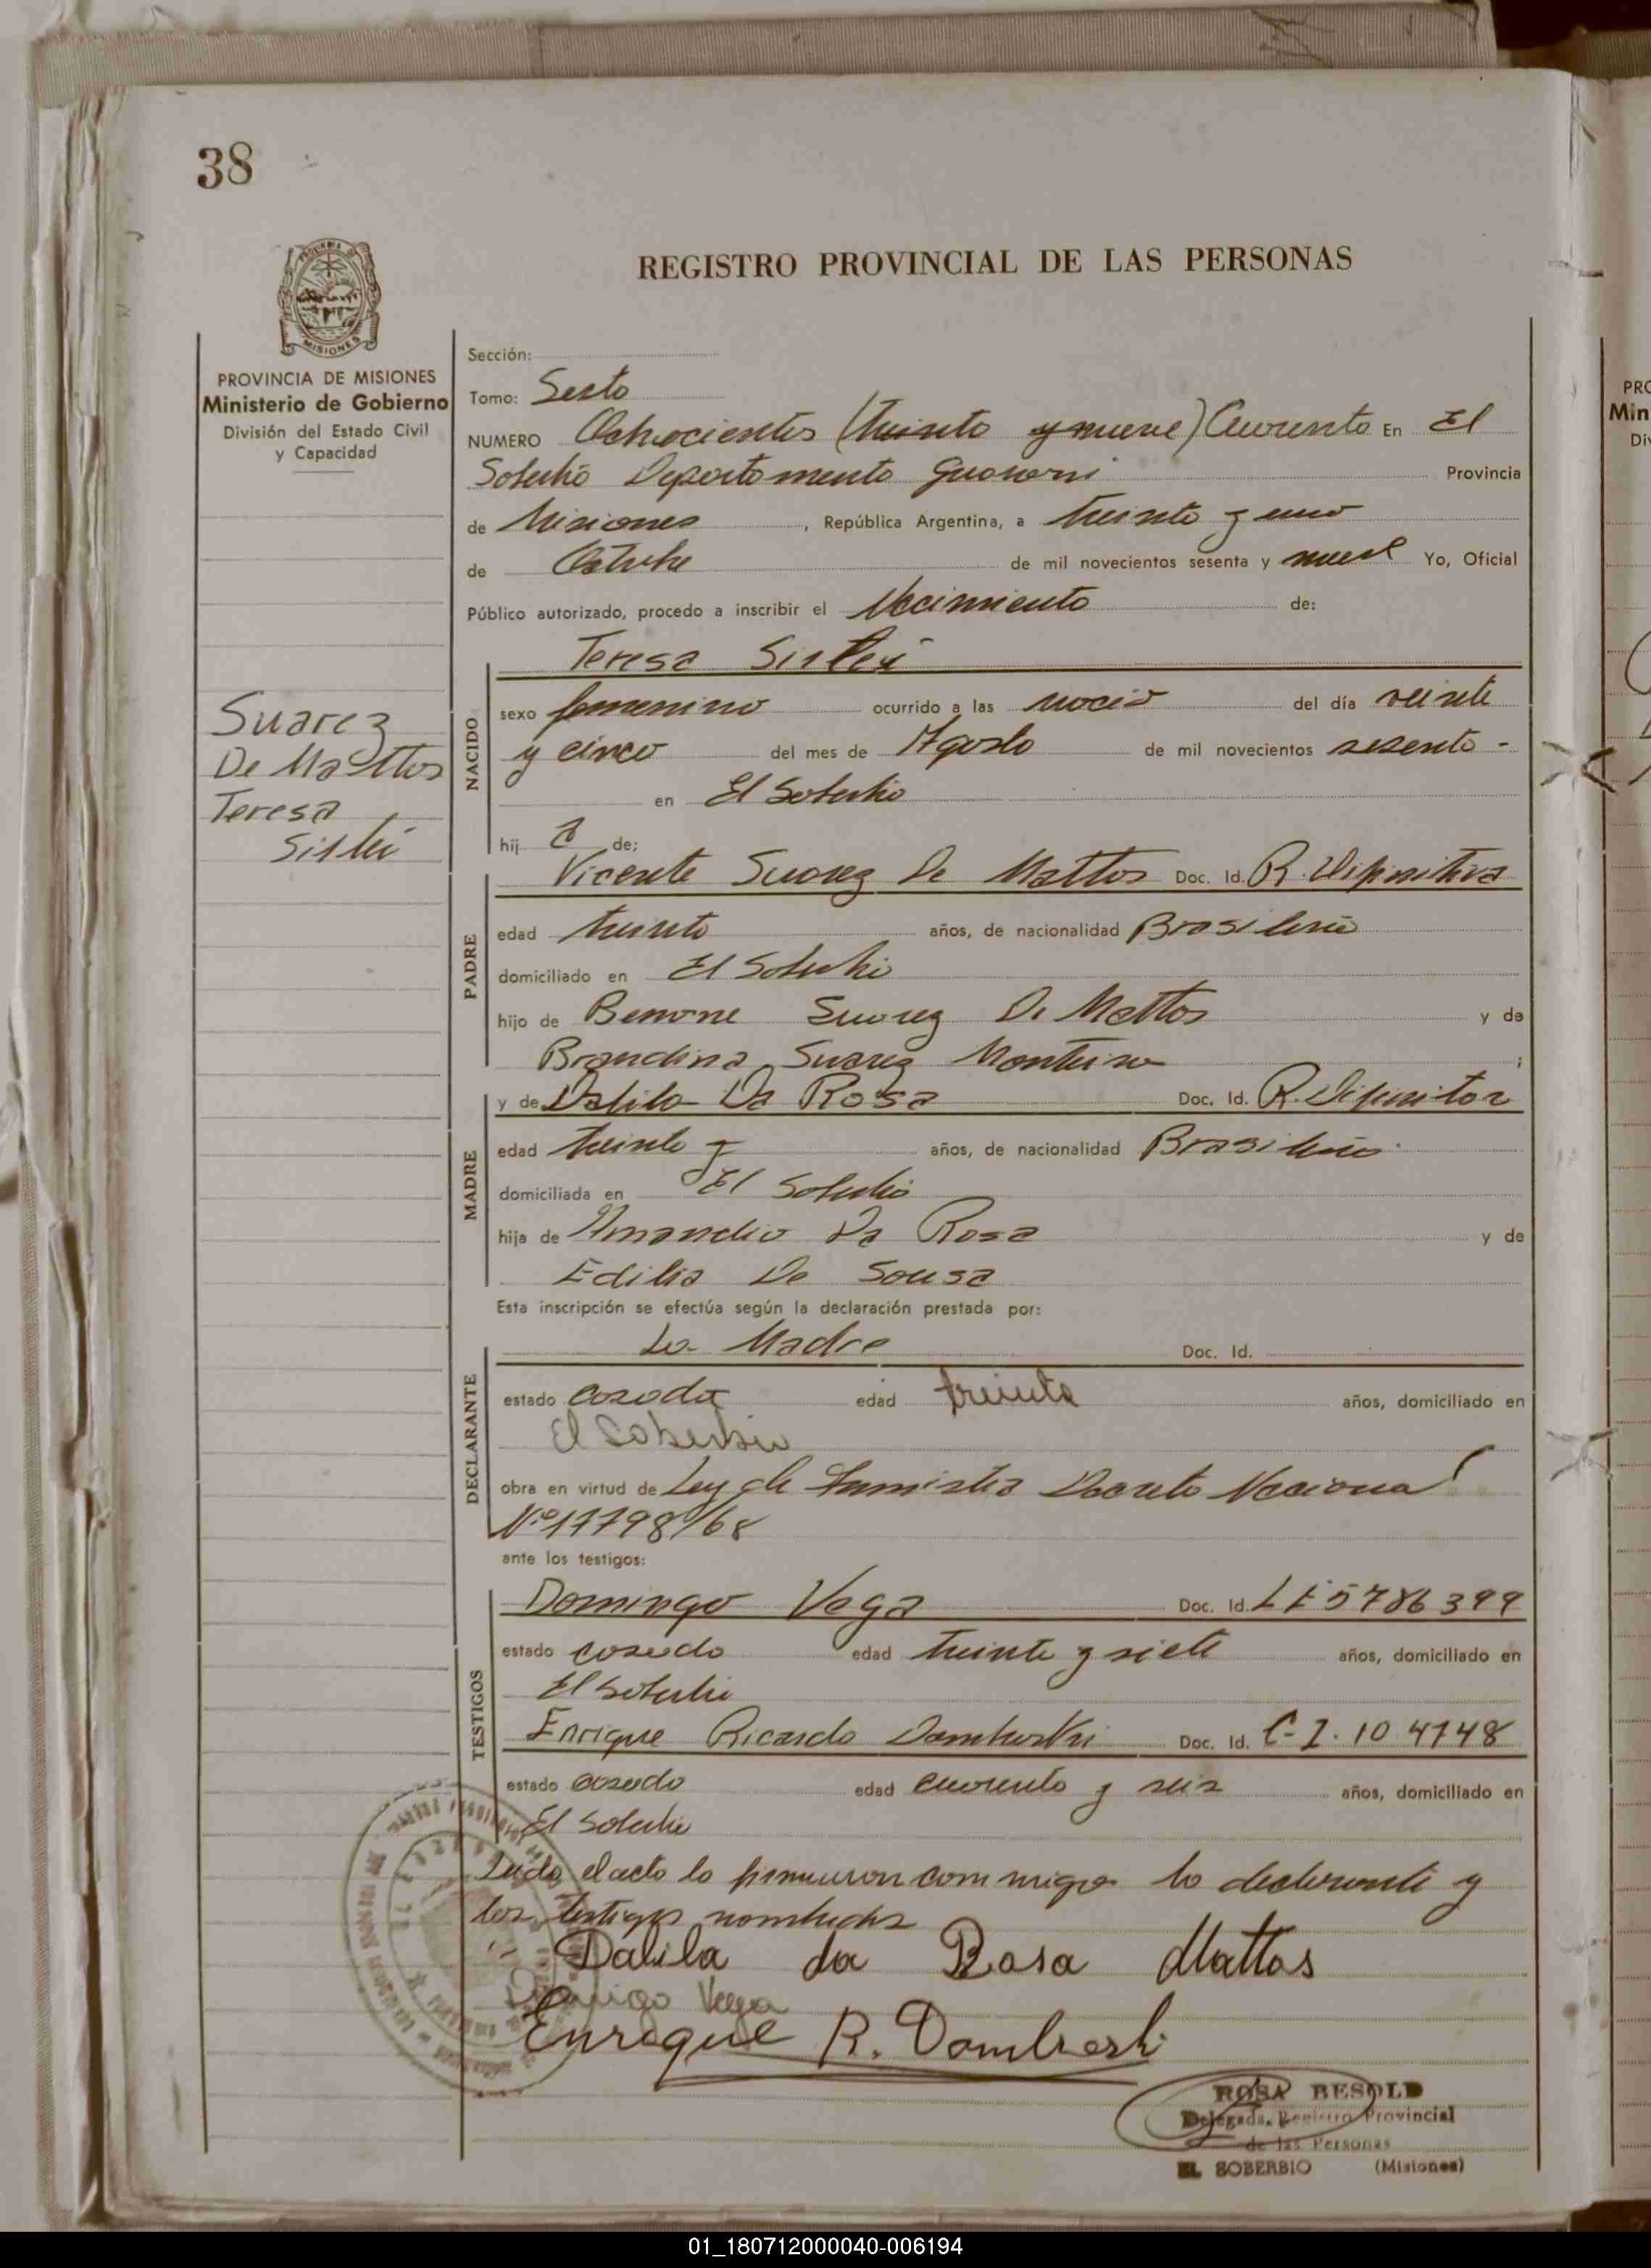 38
REGISTRO PROVINCIAL DE LAS PERSONAS
MISIONES
PROVINCIA DE MISIONES
Ministerio de Gobierno
División del Estado Civil
y Capacidad
Suarez
De Mattos
Teresa
Sislei
Sección:
Tomo: Sexto
NUMERO Ochocientos (treinta y nueve) Cuarenta En El
Soberbio Departamento Guarani Provincia
de Misiones, República Argentina, a treinta y uno
de Octubre de mil novecientos sesenta y nueve Yo, Oficial
Público autorizado, procedo a inscribir el Nacimiento de:
NACIDO
Teresa Sislei
sexo femenino ocurrido a las del día veinte
y cinco del mes de Agosto de mil novecientos sesenta -
en El Soberbio
hij a de;
PADRE
Vicente Suarez De Mattos Doc. Id. R.
edad treinta años, de nacionalidad Brasileña
domiciliado en El Soberbio
hijo de Suarez De Mattos y de
Brandina Suarez Monteiro ;
MADRE
y de Dalila Da Rosa Doc. Id. R.
edad treinta y años, de nacionalidad Brasileña
domiciliada en El Soberbio
hija de Amandio Da Rosa y de
Edilia De Sousa
Esta inscripción se efectúa según la declaración prestada por:
DECLARANTE
La Madre Doc. Id.
estado casada edad treinta años, domiciliado en
El Soberbio
obra en virtud de Ley de Amnistia Decreto Nacional
Nº 17798/68
ante los testigos:
TESTIGOS
Domingo Vega Doc. Id. L E 5786399
estado casado edad treinta y siete años, domiciliado en
El Soberbio
Enrique Ricardo Dombroski Doc. Id. C-I. 10 4748
estado casado edad cuarenta y seis años, domiciliado en
El Soberbio
Leida el acta la firmaron conmigo la declarante y
los testigos nombrados
Dalila da Rosa Mattos
Domingo Vega
Enrique R. Dombroski
ROSA BESOLD
Delegada, Registro Provincial
de las Personas
EL SOBERBIO (Misiones)
PRO
Min
Div
01_180712000040-006194